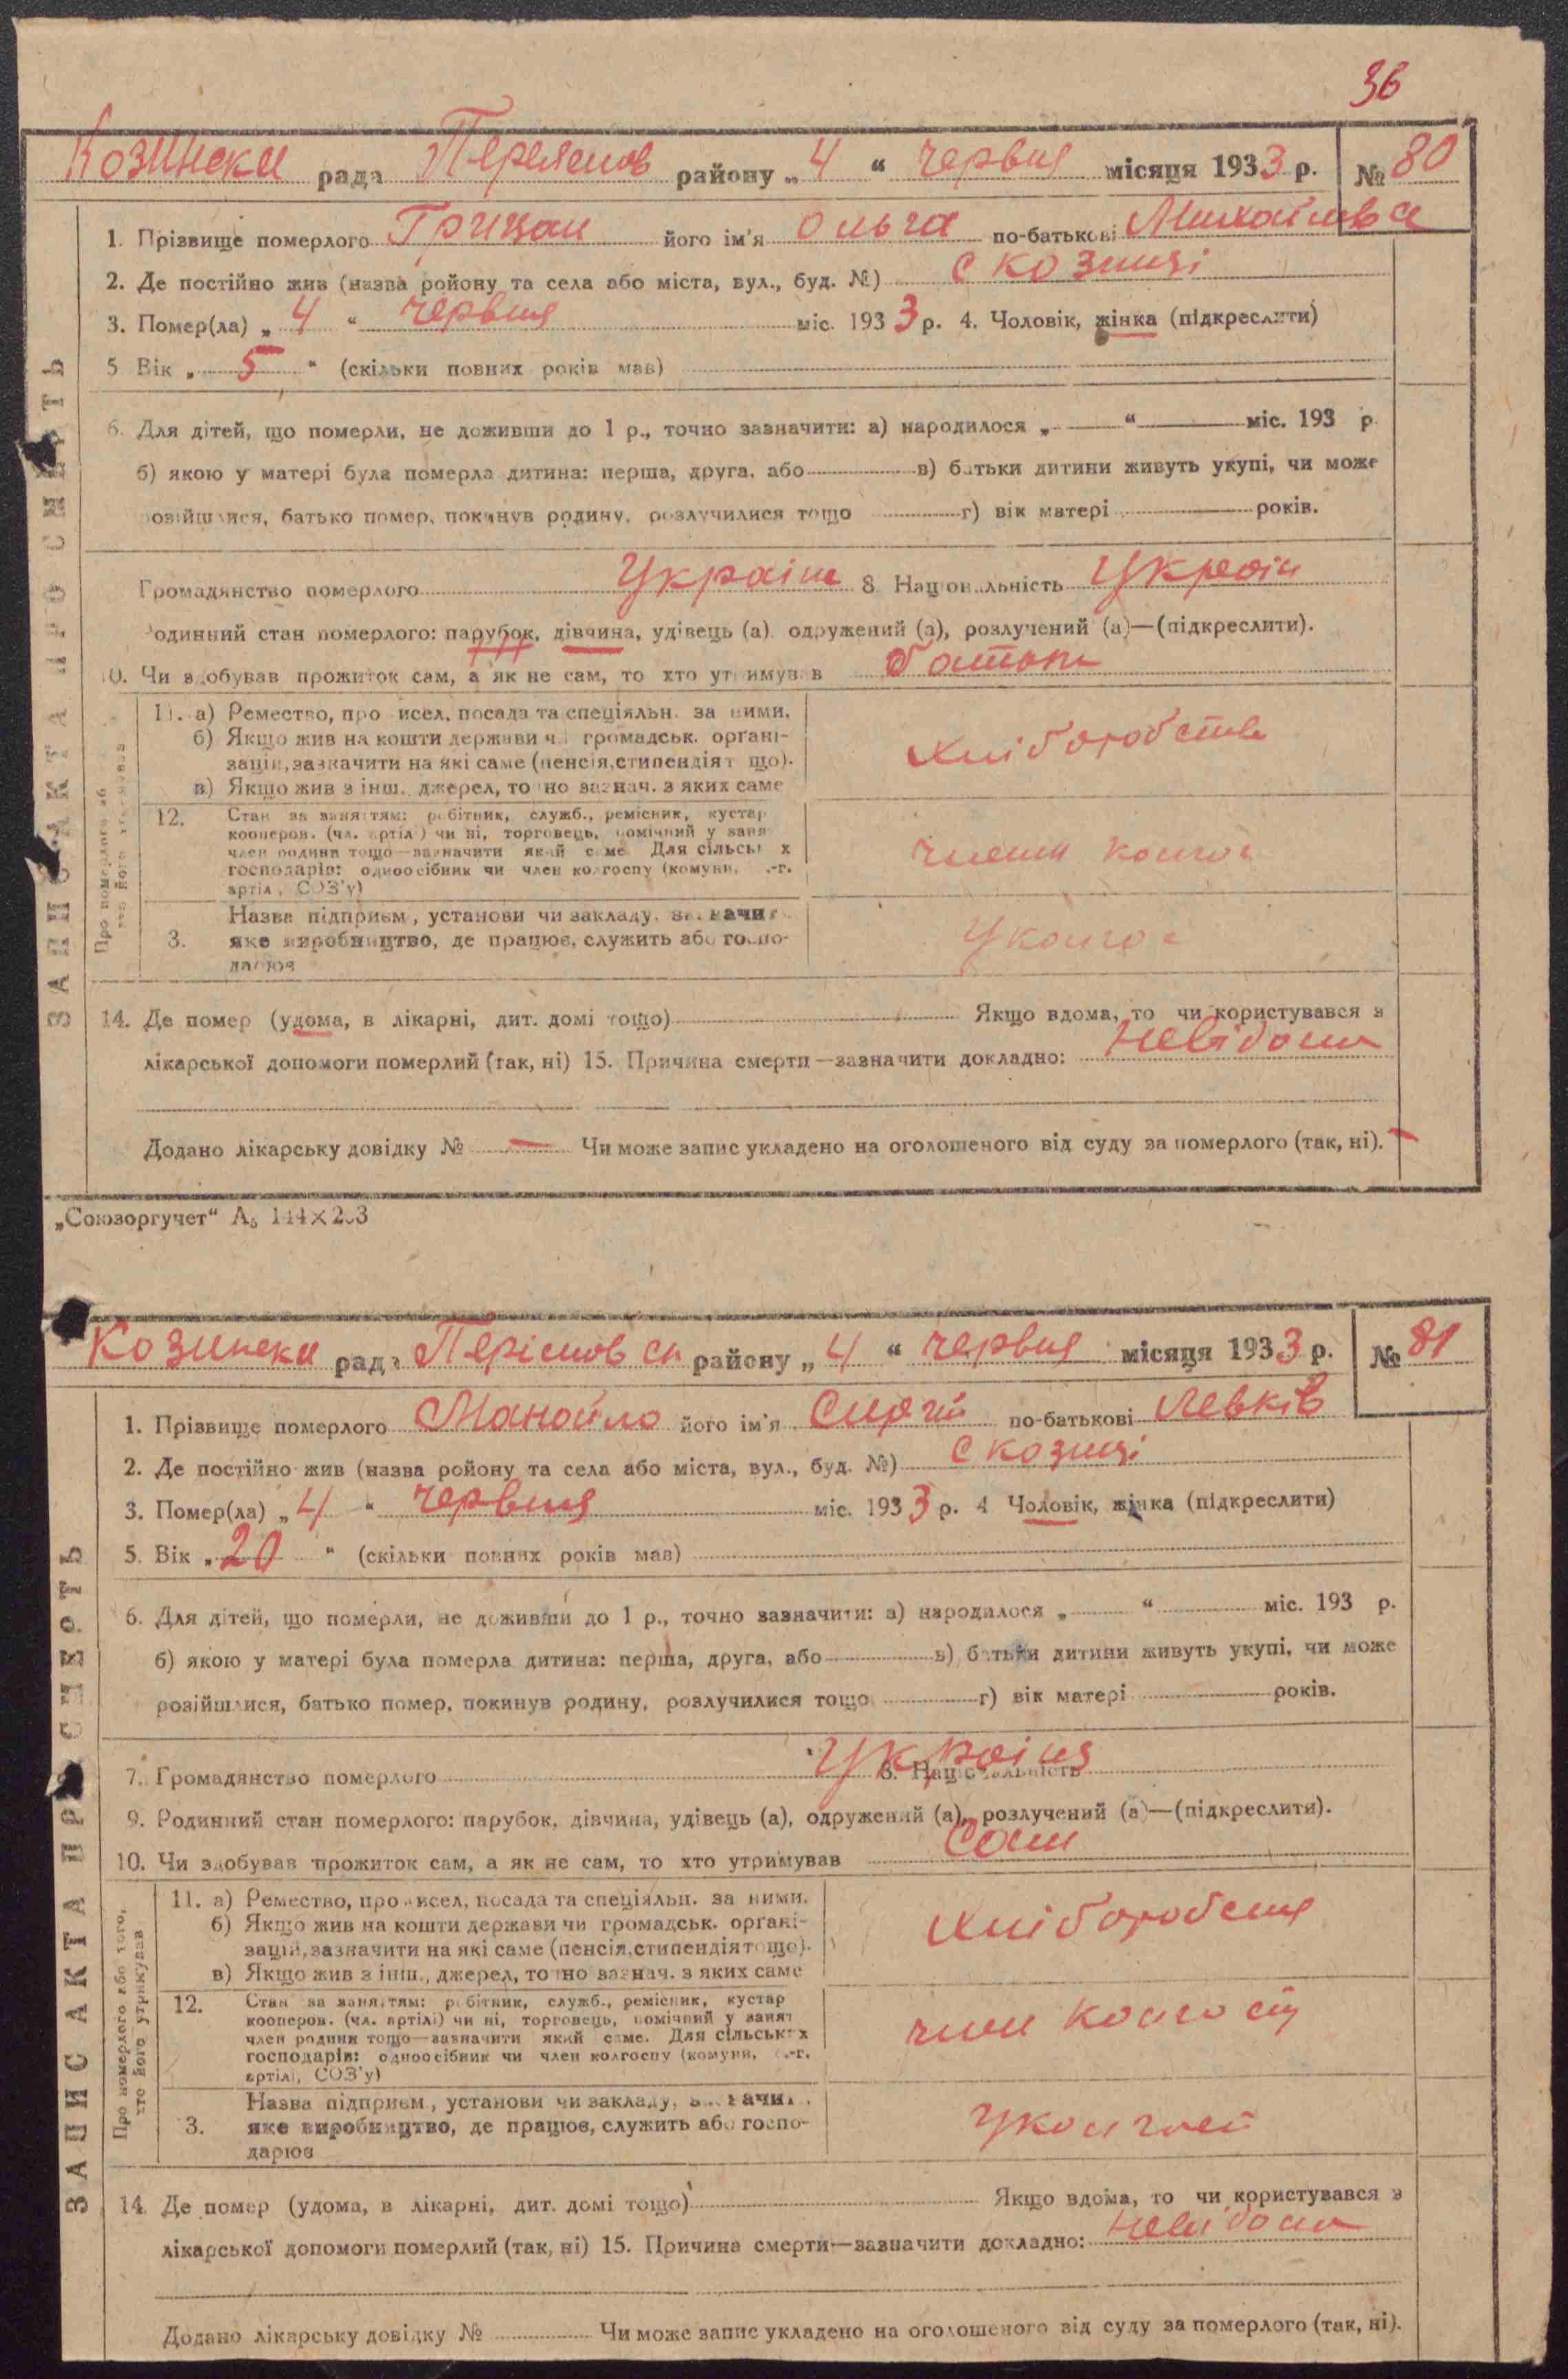 36
Козинска рада Переяслов району „ 4 “ червня місяця 1933 р. № 80
1. Прізвище померлого Грицан його ім'я Ольга по-батькові Михайлівна
2. Де постійно жив (назва ройону та села або міста, вул., буд. №) с Козинці
3. Помер(ла) „ 4 “ червня міс. 1933 р. 4. Чоловік, жінка (підкреслити)
5 Вік „ 5 “ (скільки повних років мав)
6. Для дітей, що померли, не доживши до 1 р., точно зазначити: а) народилося „ “ міс. 193 р.
б) якою у матері була померла дитина: перша, друга, або в) батьки дитини живуть укупі, чи може
розійшлися, батько помер, покинув родину, розлучилися тощо г) вік матері років.
Громадянство померлого Україне 8 Національність Україн
Родинний стан померлого: парубок, дівчина, удівець (а) одружений (а), розлучений (а)—(підкреслити).
10. Чи здобував прожиток сам, а як не сам, то хто утримував батьки
ЗАПИС АКТА ПРО СМЕРТЬ
Про померлого або того, хто його утримував
11. а) Ремество, промисел, посада та спеціяльн. за ними.
б) Якщо жив на кошти держави чи громадськ. органі-
зацій, зазначити на які саме (пенсія, стипендія тощо).
в) Якщо жив з інш. джерел, точно зазнач. з яких саме
хліборобства
12. Стан за заняттям: робітник, служб., ремісник, кустар
кооперов. (чл. артілі) чи ні, торговець, помічний у занят
член родини тощо—зазначити який саме. Для сільських
господарів: одноосібник чи член колгоспу (комуни, с.-г.
артілі, СОЗ'у)
член колгос
3. Назва підприєм., установи чи закладу, зазначити
яке виробництво, де працює, служить або госпо-
дарює
У колгос
14. Де помер (удома, в лікарні, дит. домі тощо) Якщо вдома, то чи користувався з
лікарської допомоги померлий (так, ні) 15. Причина смерти—зазначити докладно: Невідома
Додано лікарську довідку № — Чи може запис укладено на оголошеного від суду за померлого (так, ні). —
„Союзоргучет“ А5 144×203
Козинска рада Переяслов ск району „ 4 “ червня місяця 1933 р. № 81
1. Прізвище померлого Манойло його ім'я Сиргій по-батькові Левків
2. Де постійно жив (назва ройону та села або міста, вул., буд. №) с Козинці
3. Помер(ла) „ 4 “ червня міс. 1933 р. 4 Чоловік, жінка (підкреслити)
5. Вік „ 20 “ (скільки повних років мав)
6. Для дітей, що померли, не доживши до 1 р., точно зазначити: а) народилося „ “ міс. 193 р.
б) якою у матері була померла дитина: перша, друга, або в) батьки дитини живуть укупі, чи може
розійшлися, батько помер, покинув родину, розлучилися тощо г) вік матері років.
7. Громадянство померлого Україня 8. Національність
9. Родинний стан померлого: парубок, дівчина, удівець (а), одружений (а), розлучений (а)—(підкреслити).
10. Чи здобував прожиток сам, а як не сам, то хто утримував Сам
ЗАПИС АКТА ПРО СМЕРТЬ
Про померлого або того, хто його утримував
11. а) Ремество, промисел, посада та спеціяльн. за ними.
б) Якщо жив на кошти держави чи громадськ. органі-
зацій, зазначити на які саме (пенсія, стипендія тощо).
в) Якщо жив з інш., джерел, точно зазнач. з яких саме
хліборобства
12. Стан за заняттям: робітник, служб., ремісник, кустар
кооперов. (чл. артілі) чи ні, торговець, помічний у занят
член родини тощо—зазначити який саме. Для сільських
господарів: одноосібник чи член колгоспу (комуни, с.-г.
артілі, СОЗ'у)
член колгоспу
3. Назва підприєм., установи чи закладу, зазначити
яке виробництво, де працює, служить або госпо-
дарює
У колгосп
14. Де помер (удома, в лікарні, дит. домі тощо) Якщо вдома, то чи користувався з
лікарської допомоги померлий (так, ні) 15. Причина смерти—зазначити докладно: Невідома
Додано лікарську довідку № Чи може запис укладено на оголошеного від суду за померлого (так, ні).